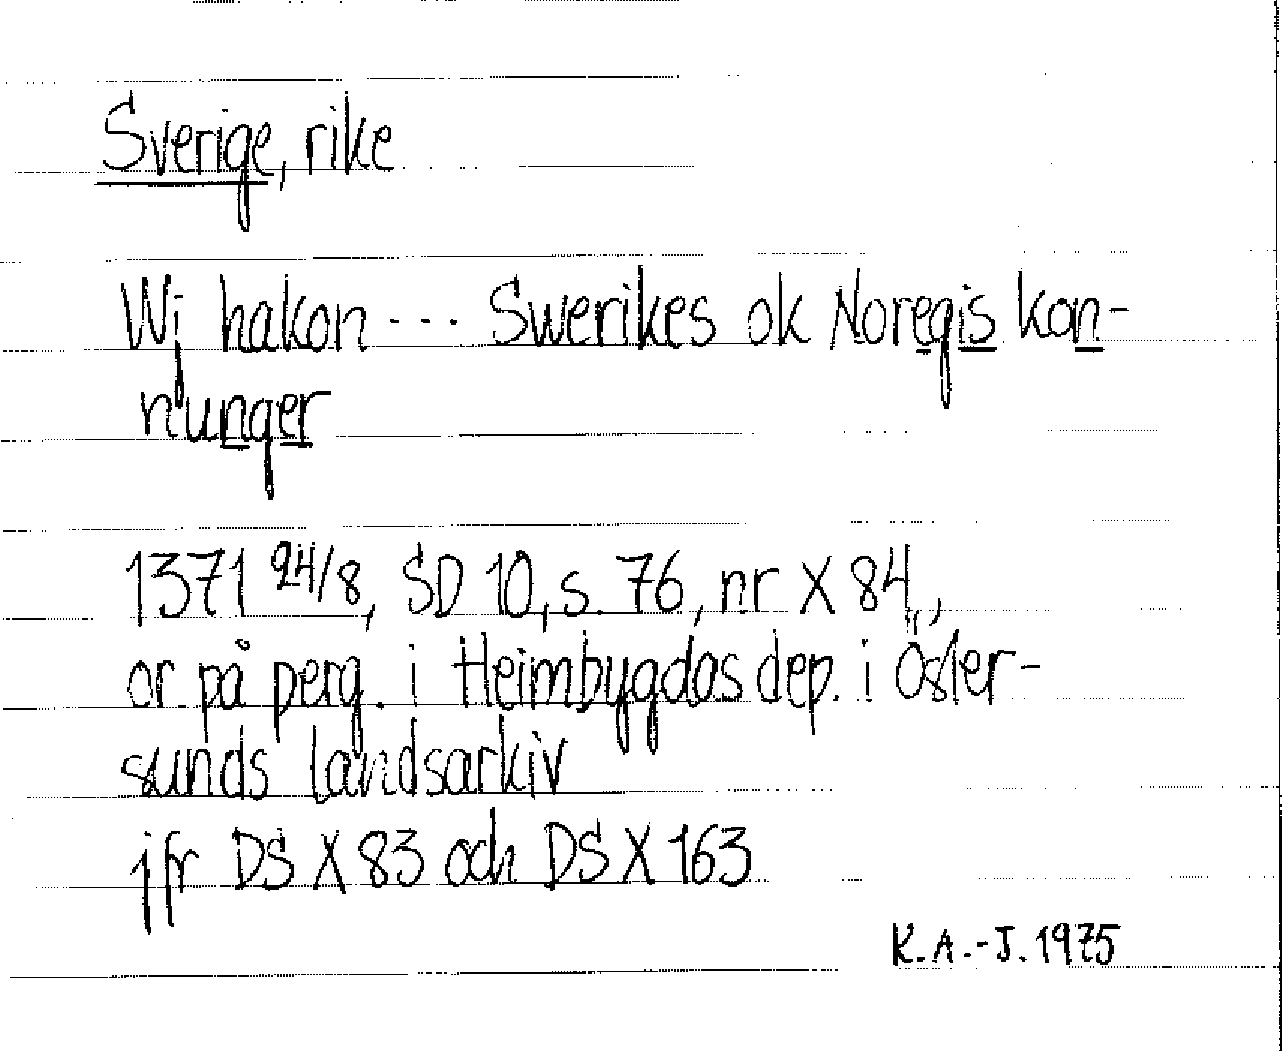 Sverige, rike
Wj hakon --- Swerikes ok Noregis kon-
nunger
1371 24/8, SD 10, s. 76, nr X 84,
or. på perg. i Heimbygdas dep. i Öster-
sunds landsarkiv
jfr DS X 83 och DS X 163
K.A.-J. 1975